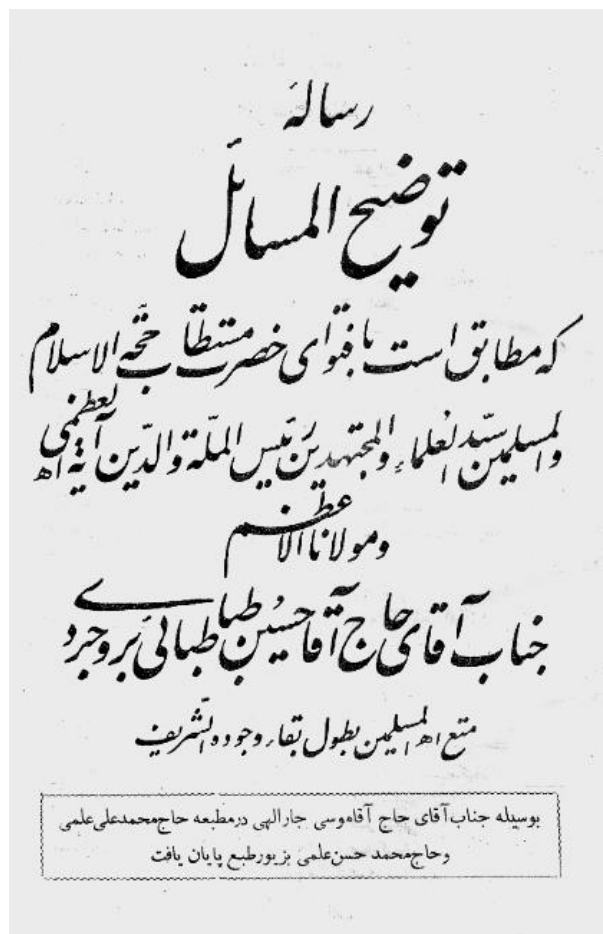 رسالهٔ
توضیح المسائل
که مطابق است با فتوای حضرت مستطاب حجّة الاسلام
والمسلمین سیّد العلماء والمجتهدین رئیس الملّة والدّین آیة الله العظمی
ومولانا الاعظم
جناب آقای حاج آقا حسین طباطبائی بروجردی
متع الله المسلمین بطول بقاء وجوده الشّریف
بوسیله جناب آقای حاج آقاموسی جارالهی درمطبعه حاج محمدعلی علمی
وحاج محمد حسن علمی بزیورطبع پایان یافت